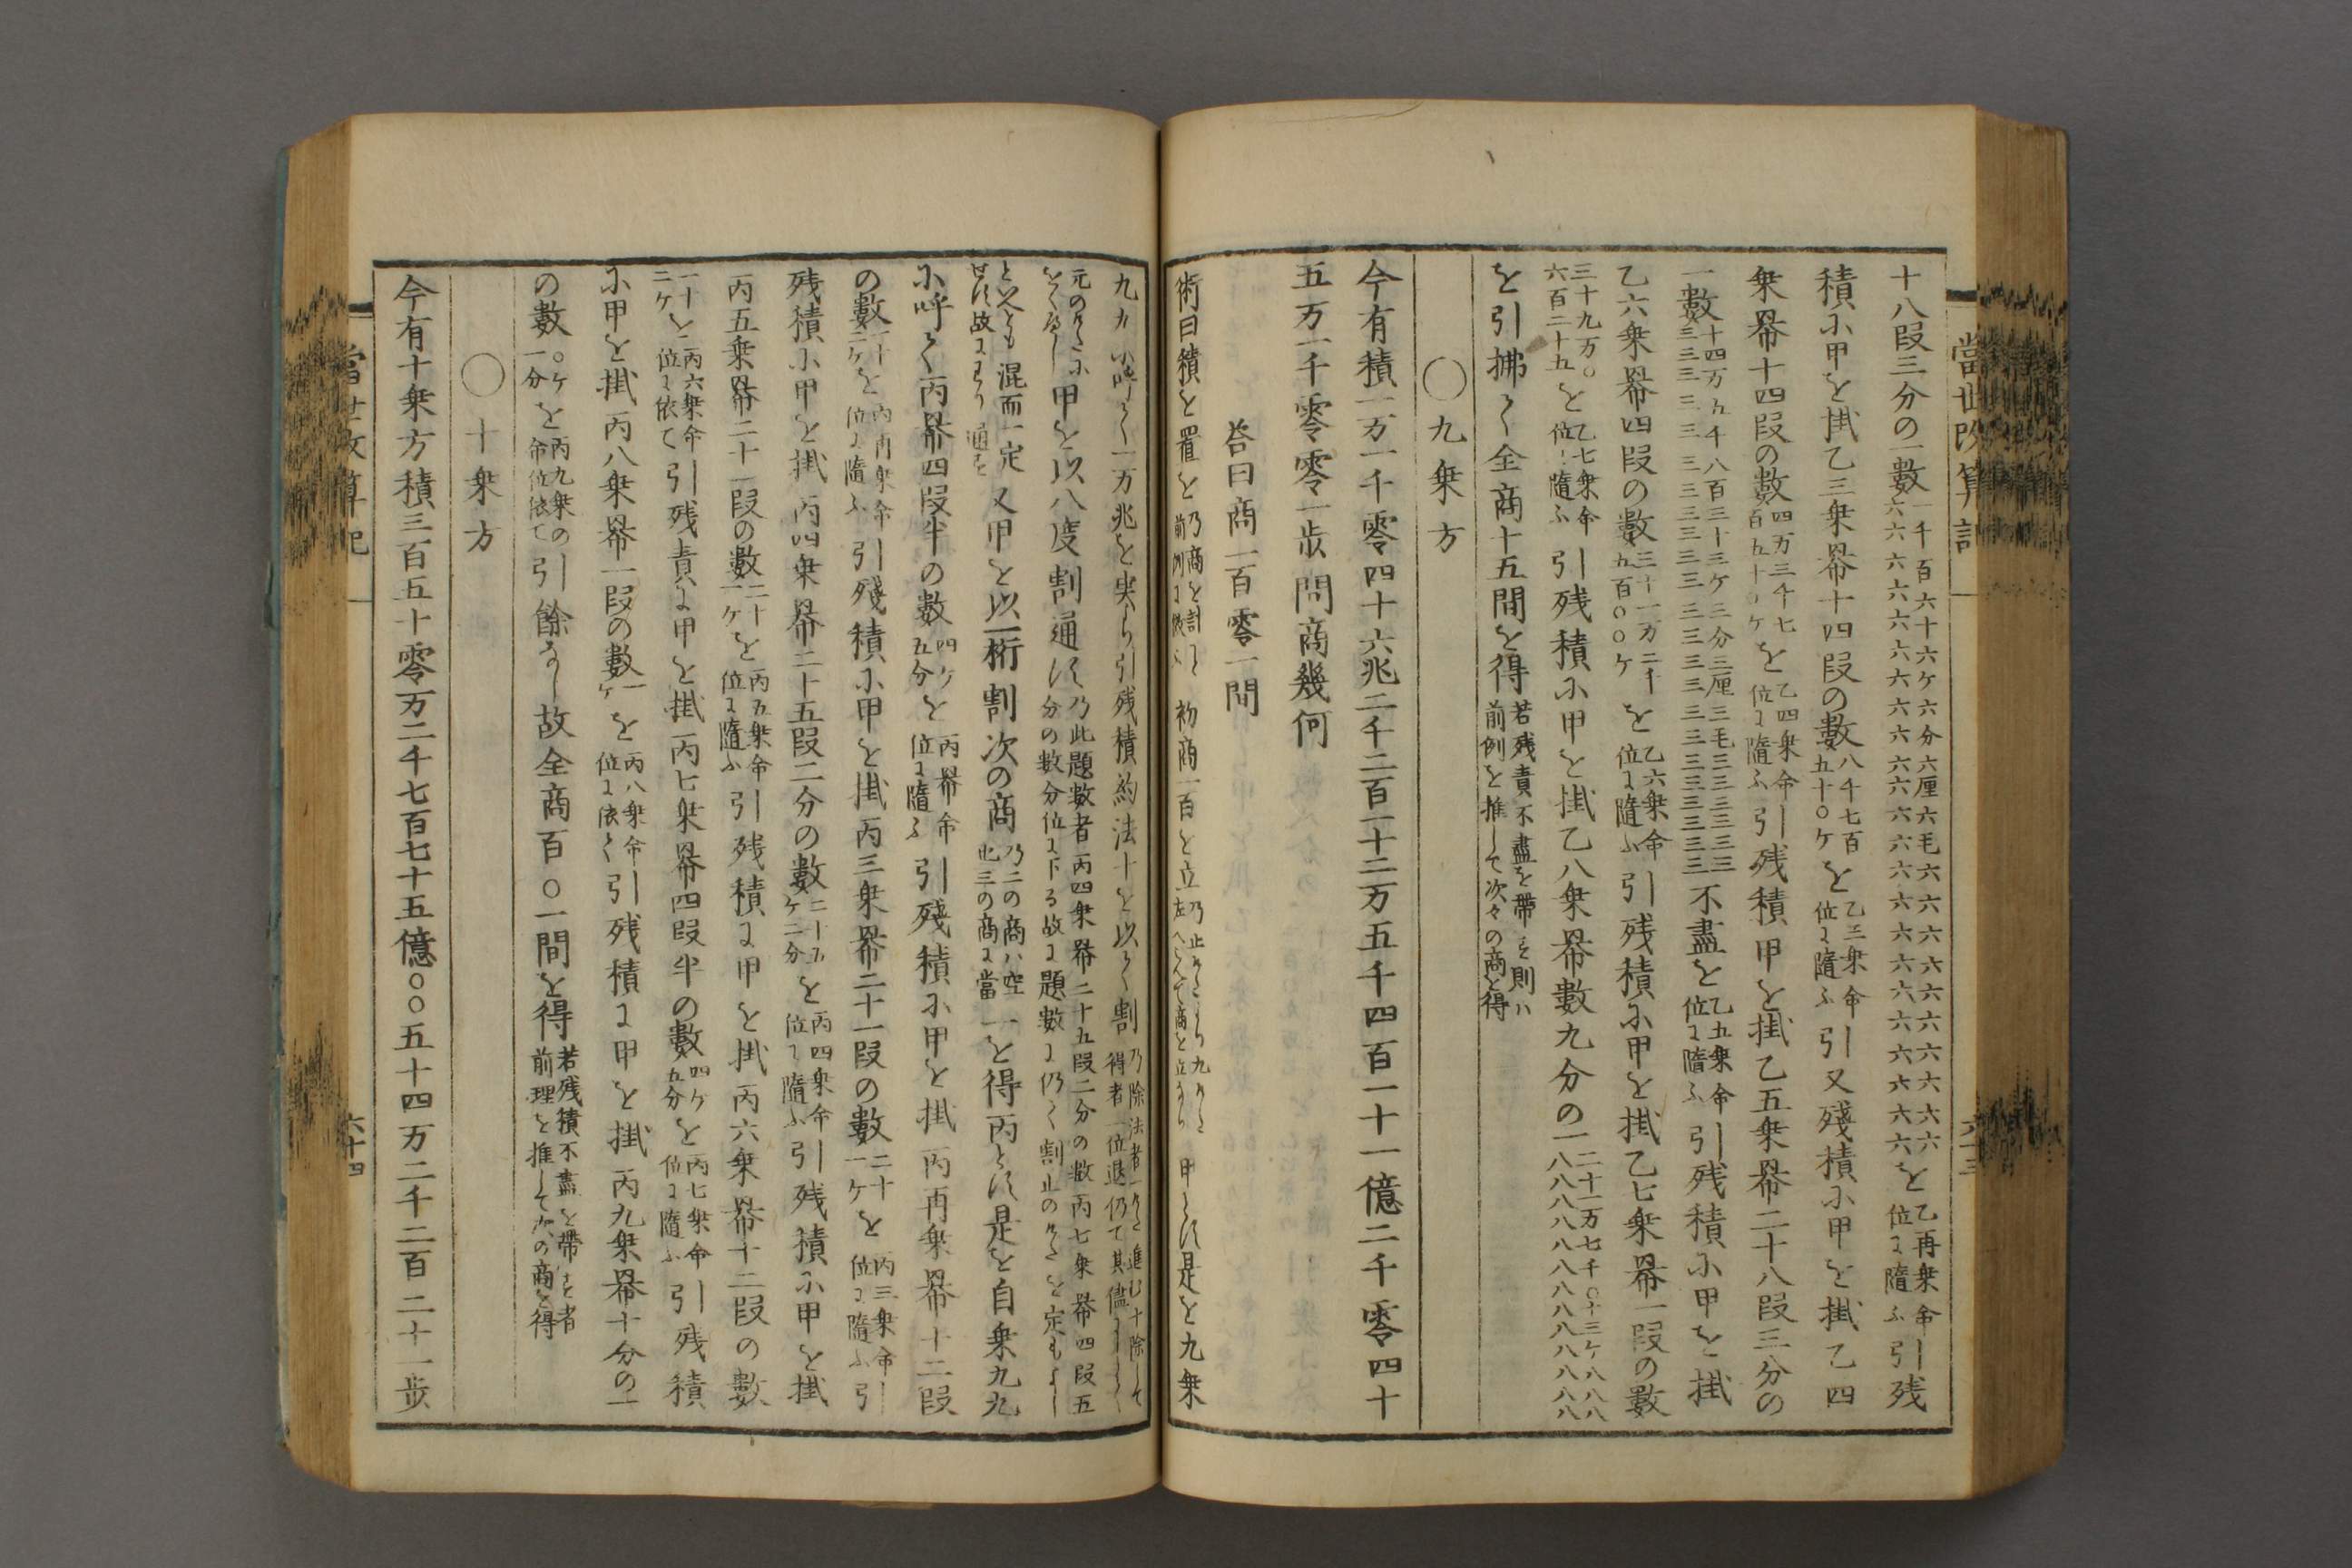 當世改算記
十八段三分の一數一千百六十六ケ六分六厘六毛六六六六六六六六六六六六六六六六六六六六六六六六六六を乙再乗命位に隨ふ引残
積に甲を掛乙三乗羃十四段の數八千七百五十〇ケを乙三乗命位に隨ふ引又殘積に甲を掛乙四
乗羃十四段の數四万三千七百五十〇ケを乙四乗命位に隨ふ引残積甲を掛乙五乗羃二十八段三分の
一數十四万五千八百三十三ケ三分三厘三毛三三三三三不盡を乙五乗命位に隨ふ引残積に甲を掛
乙六乗羃四段の數三十一万二千五百〇〇ケを乙六乗命位に隨ふ引残積に甲を掛乙七乗羃一段の數
三十九万〇六百二十五を乙七乗命位に隨ふ引残積に甲を掛乙八乗羃數九分の一二十一万七千〇十三ケ八八八
を引拂て全商十五間を得若残責不盡を帶る則ハ前例を推して次々の商を得
〇九乗方
今有積一万一千零四十六兆二千二百一十二万五千四百一十一億二千零四十
五万一千零零一歩問商幾何
荅曰商一百零一間
術曰積を置を乃商を計て前例に依ふ初商一百を立甲とす是を九乗
九九に呼て一万兆を実ら引残積約法十を以て割乃除法者
元のに甲を以八度割通す乃此題數者丙四乗羃二十五段二分の数丙七乗羃四段五分の數分位に下る故に題數に仍て割止のを定むよし
混而一定又甲を以一桁割次の商乃二の商ハ空此三の商に當一を得丙とす是を自乗九九
に呼て丙羃四段半の數四ケ五分を丙羃命位に隨ふ引殘積に甲を掛丙再乗羃十二段
の數一十二ケを丙再乗命位に隨ふ引殘積に甲を掛丙三乗羃二十一段の數二十一ケを丙三乗命位に隨ふ引
残積に甲を掛丙四乗羃二十五段二分の數二十五ケ二分を丙四乗命位に隨ふ引残積に甲を掛
丙五乗羃二十一段の數二十一ケを丙五乗命位に隨ふ引残積に甲を掛丙六乗羃十二段の數
一十二ケを丙六乗命位に依て引残責に甲を掛丙七乗羃四段半の數四ケ五分を丙七乗命位に隨ふ引残積
に甲を掛丙八乗羃一段の數一ケを丙八乗命位に依て引残積に甲を掛丙九乗羃十分の一
の數〇ケ一分を丙九乗の命位依て引餘なし故全商百〇一間を得若残積不盡を帶る者前理を推して次の商を得
〇十乗方
今有十乗方積三百五十零万二千七百七十五億〇〇五十四万二千二百二十一歩
當世改算記
六十四